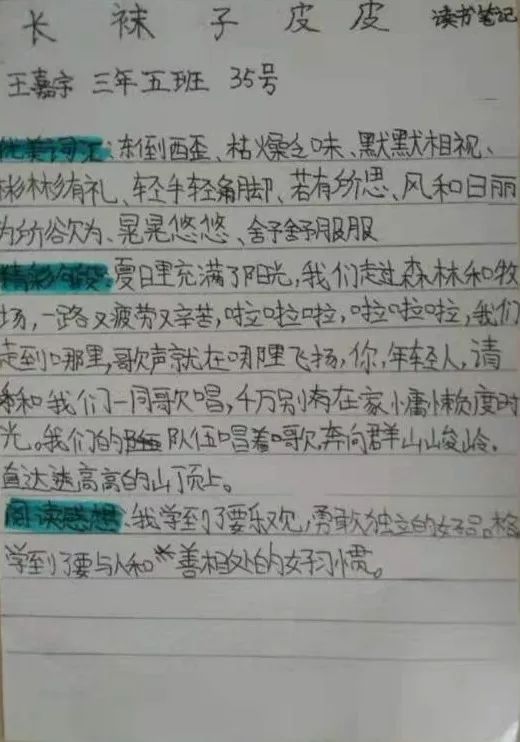 长袜子皮皮 读书笔记
王嘉宇 三年五班 35号
优美词汇:东倒西歪、枯燥乏味、默默相视、
彬彬有礼、轻手轻脚、若有所思、风和日丽
为所欲为、晃晃悠悠、舒舒服服
精彩句段:夏日里充满了阳光,我们走过森林和牧
场,一路又疲劳又辛苦,啦啦啦啦,啦啦啦啦,我们
走到哪里,歌声就在哪里飞扬,你,年轻人,请
和我们一同歌唱,千万别有在家慵懒度时
光。我们的队伍唱着歌,奔向群山峻岭,
直达高高的山顶上。
阅读感想:我学到了要乐观,勇敢,独立的好品格,
学到了要与人和善相处的好习惯。